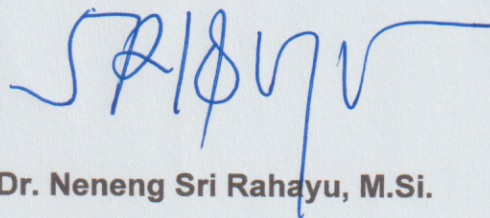 Dr. Neneng Sri Rahayu, M.Si.